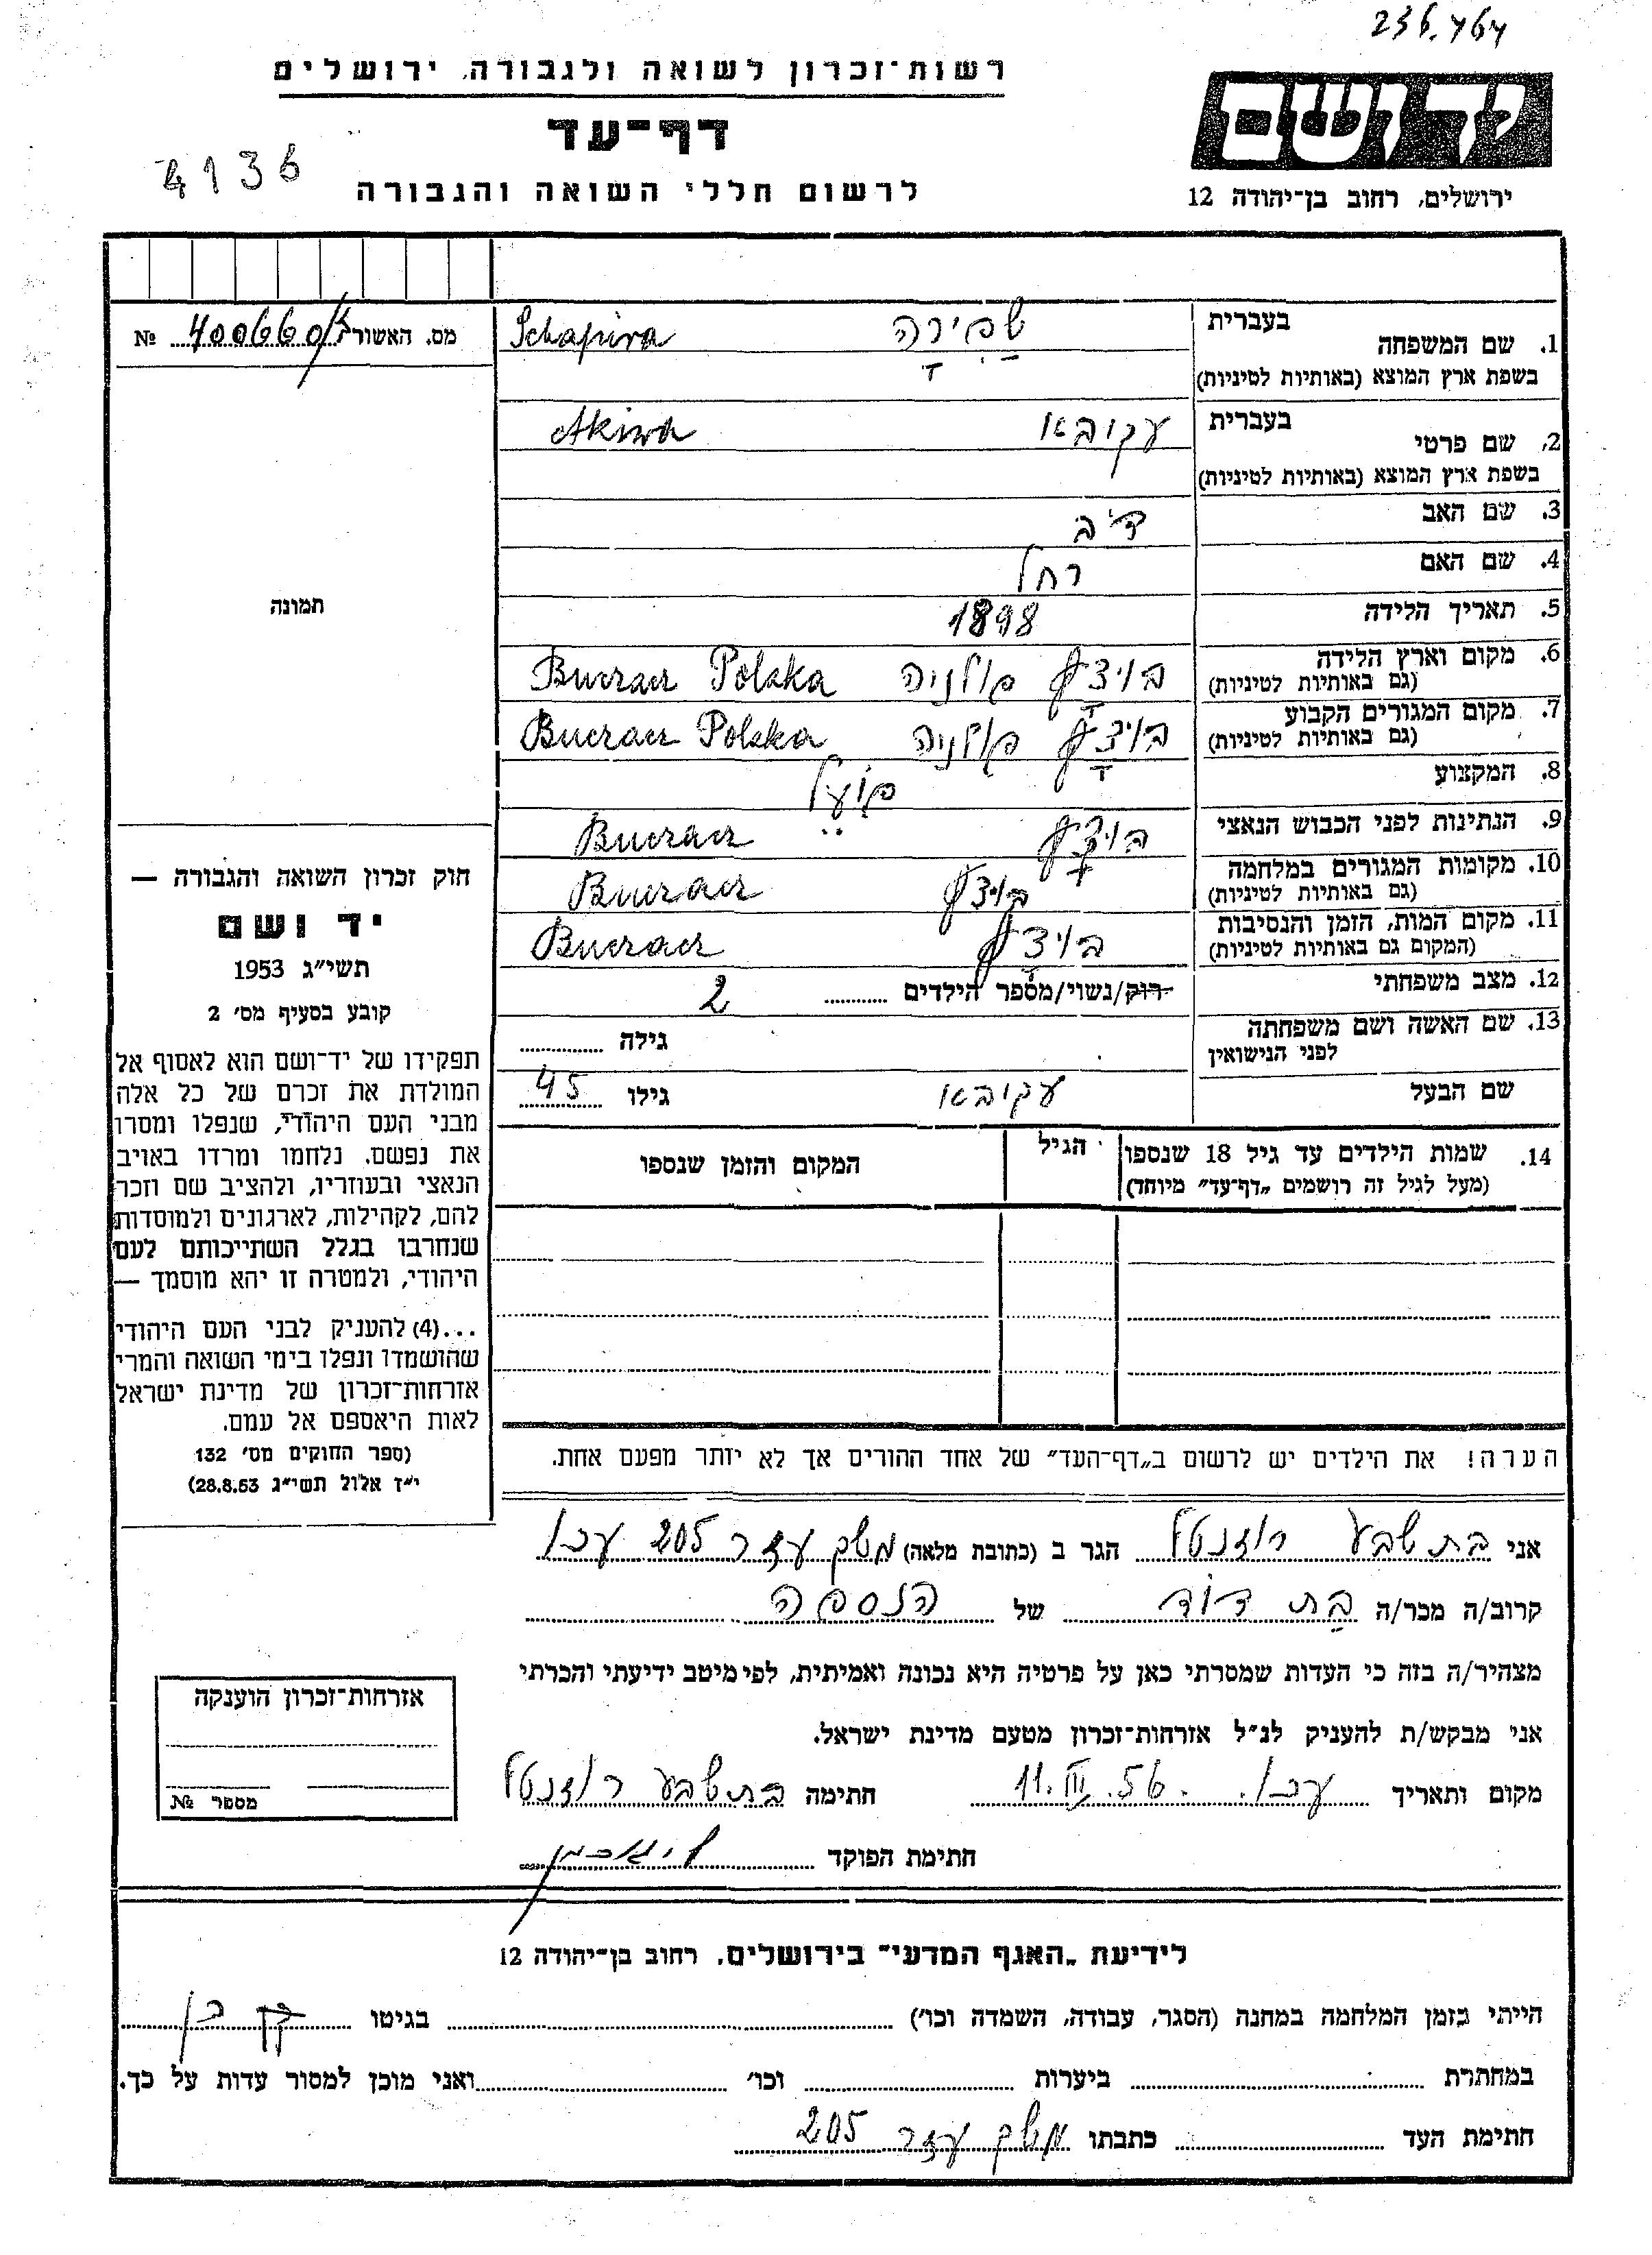 236.464
רשות־זכרון לשואה ולגבורה, ירושלים
ידושם
דף־עד
4136
לרשום חללי השואה והגבורה
ירושלים, רחוב בן־יהודה 12
מס. האשור 400660/ №
1. שם המשפחה
בעברית
שפירה
Schapira
בשפת ארץ המוצא (באותיות לטיניות)
2. שם פרטי
בעברית
עקובאו
Akiwa
בשפת ארץ המוצא (באותיות לטיניות)
3. שם האב
4. שם האם רחל
5. תאריך הלידה 1898
6. מקום וארץ הלידה פולניה Buczacz Polska
(גם באותיות לטיניות)
7. מקום המגורים הקבוע פולניה Buczacz Polska
(גם באותיות לטיניות)
8. המקצוע פועל
9. הנתינות לפני הכבוש הנאצי Buczacz
10. מקומות המגורים במלחמה Buczacz
(גם באותיות לטיניות)
11. מקום המות, הזמן והנסיבות Buczacz
(המקום גם באותיות לטיניות)
12. מצב משפחתי רוק/נשוי/מספר הילדים 2
13. שם האשה ושם משפחתה גילה
לפני הנישואין
שם הבעל עקובאו גילו 45
14. שמות הילדים עד גיל 18 שנספו הגיל המקום והזמן שנספו
(מעל לגיל זה רושמים „דף־עד״ מיוחד)
הערה! את הילדים יש לרשום ב„דף־העד״ של אחד ההורים אך לא יותר מפעם אחת.
תמונה
חוק זכרון השואה והגבורה —
יד ושם
תשי״ג 1953
קובע בסעיף מס׳ 2
תפקידו של יד־ושם הוא לאסוף אל
המולדת את זכרם של כל אלה
מבני העם היהודי, שנפלו ומסרו
את נפשם, נלחמו ומרדו באויב
הנאצי ובעוזריו, ולהציב שם וזכר
להם, לקהילות, לארגונים ולמוסדות
שנחרבו בגלל השתייכותם לעם
היהודי, ולמטרה זו יהא מוסמך —
...(4) להעניק לבני העם היהודי
שהושמדו ונפלו בימי השואה והמרי
אזרחות־זכרון של מדינת ישראל
לאות היאספם אל עמם.
(ספר החוקים מס׳ 132
י״ז אלול תשי״ג 28.8.53)
אני בת שבע רוזנטל הגר ב (כתובת מלאה) משק עזר 205 עכו
קרוב/ה מכר/ה בת דוד של הנספה
מצהיר/ה בזה כי העדות שמסרתי כאן על פרטיה היא נכונה ואמיתית, לפי מיטב ידיעתי והכרתי
אני מבקש/ת להעניק לנ״ל אזרחות־זכרון מטעם מדינת ישראל.
מקום ותאריך עכו. 11.III.56 חתימה בת שבע רוזנטל
חתימת הפוקד
אזרחות־זכרון הוענקה
מספר №
לידיעת „האגף המדעי״ בירושלים, רחוב בן־יהודה 12
הייתי בזמן המלחמה במחנה (הסגר, עבודה, השמדה וכו׳) בגיטו
במחתרת ביערות וכו׳ ואני מוכן למסור עדות על כך.
חתימת העד כתבתו משק עזר 205